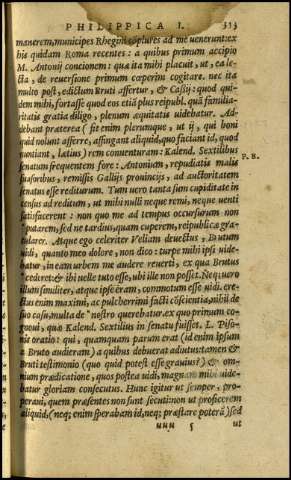 PHILIPPICA I. 313
manerem, municipes Rhegini cōplures ad me uenerunt: ex
his quidam Roma recentes: a quibus primum accipio
M. Antonij concionem: qua ita mihi placuit, ut, ea le-
cta, de reuersione primum cœperim cogitare. nec ita
multo post, edictum Bruti affertur, & Cassij: quod qui-
dem mihi, fortasse quod eos etiā plus reipubl. quā familia-
ritatis gratia diligo, plenum æquitatis uidebatur. Ad-
debant præterea (fit enim plerunque, ut ij, qui boni
quid nolunt afferre, affingant aliquid, quo faciant id, quod
nuntiant, lætius) rem conuenturam: Kalend. Sextilibus
senatum frequentem fore: Antonium, repudiatis malis P. B.
suasoribus, remissis Gallijs prouincijs, ad auctoritatem
senatus esse rediturum. Tum uero tanta sum cupiditate in
census ad reditum, ut mihi nulli neque remi, neque uenti
satisfacerent: non quo me ad tempus occursurum non
putarem, sed ne tardius, quam cuperem, reipublicæ gra-
tularer. Atque ego celeriter Veliam deuectus, Brutum
uidi, quanto meo dolore, non dico: turpe mihi ipsi uide-
batur, in eam urbem me audere reuerti, ex qua Brutus
cederet: & ibi uelle tuto esse, ubi ille non posset. Neq; uero
illum similiter, atque ipse eram, commotum esse uidi. ere-
ctus enim maximi, ac pulcherrimi facti cōscientia, nihil de
suo casu, multa de nostro querebatur. ex quo primum co-
gnoui, quæ Kalend. Sextilib. in senatu fuisset L. Piso-
nis oratio: qui, quamquam parum erat (id enim ipsum
a Bruto audieram) a quibus debuerat adiutus: tamen &
Bruti testimonio (quo quid potest esse grauius?) & om-
nium prædicatione, quos postea uidi, magnam mihi uide-
batur gloriam consecutus. Hunc igitur ut sequerer, pro-
peraui, quem præsentes non sunt secuti: non ut proficerem
aliquid, (neq; enim sperabam id, neq; præstare poterā) sed
ut